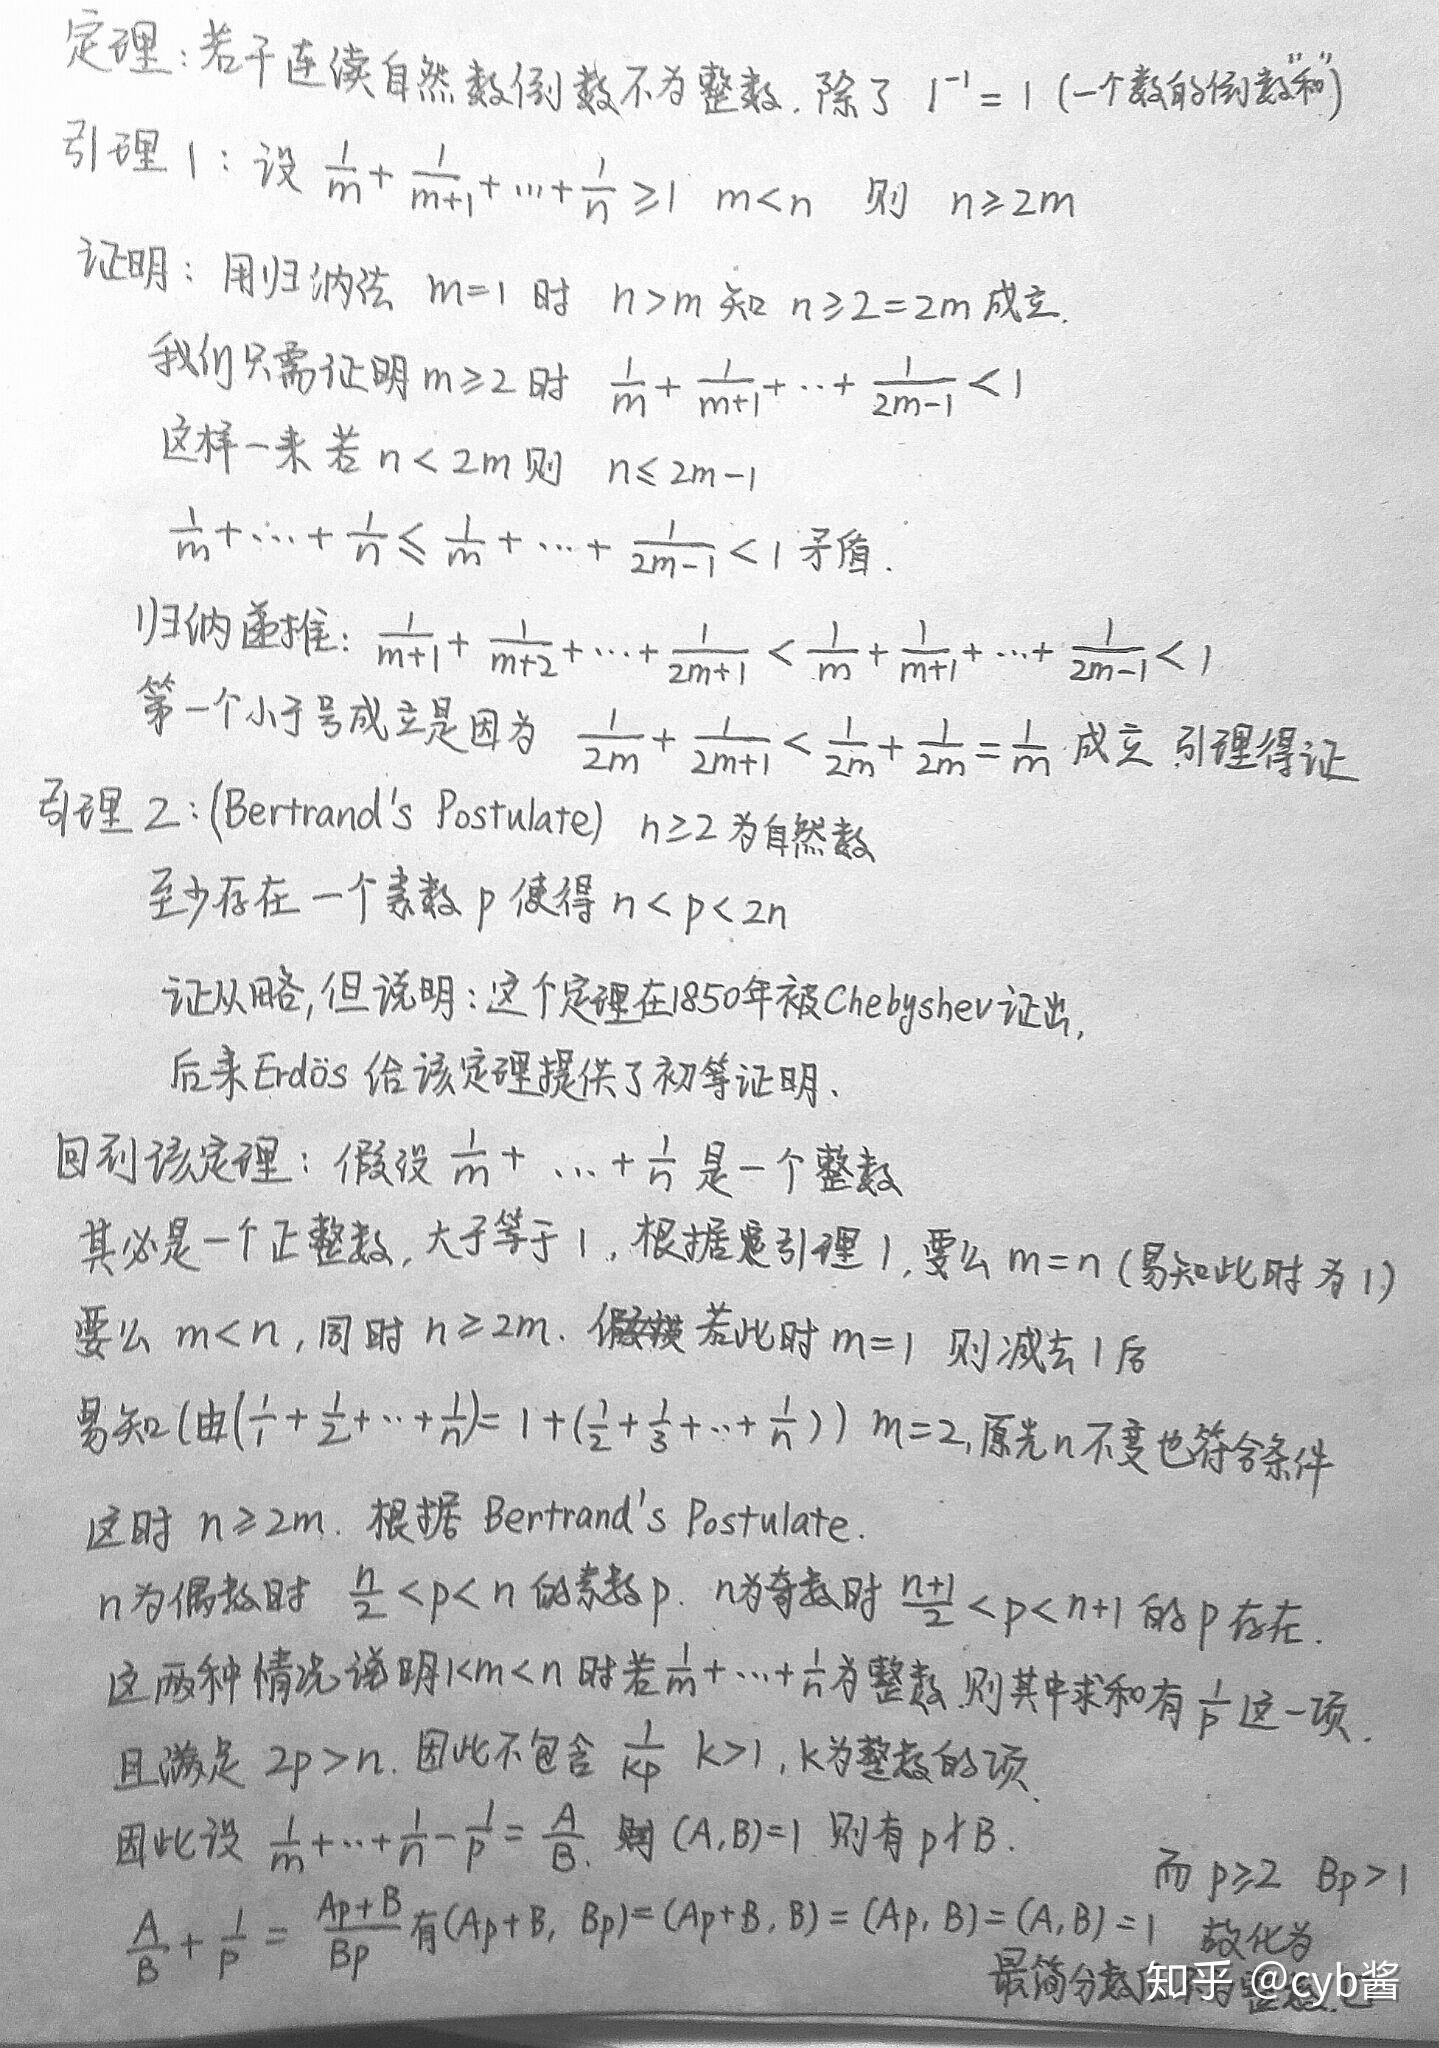 定理：若干连续自然数倒数不为整数.除了 1⁻¹ = 1 (一个数的倒数"和")
引理1：设 1/m + 1/(m+1) + … + 1/n ≥ 1 m<n 则 n≥2m
证明：用归纳法 m=1 时 n>m 知 n≥2=2m 成立.
我们只需证明 m≥2 时 1/m + 1/(m+1) + … + 1/(2m-1) < 1
这样一来 若 n<2m 则 n≤2m-1
1/m + … + 1/n ≤ 1/m + … + 1/(2m-1) < 1 矛盾.
归纳递推：1/(m+1) + 1/(m+2) + … + 1/(2m+1) < 1/m + 1/(m+1) + … + 1/(2m-1) < 1
第一个小于号成立是因为 1/2m + 1/(2m+1) < 1/2m + 1/2m = 1/m 成立 引理得证
引理2：(Bertrand's Postulate) n≥2 为自然数
至少存在一个素数 p 使得 n<p<2n
证从略,但说明：这个定理在1850年被Chebyshev证出,
后来Erdös给该定理提供了初等证明.
回到该定理：假设 1/m + … + 1/n 是一个整数
其必是一个正整数,大于等于1,根据引理1,要么 m=n (易知此时为1)
要么 m<n,同时 n≥2m. 若此时 m=1 则减去1后
易知(由(1/1 + 1/2 + … + 1/n) = 1 + (1/2 + 1/3 + … + 1/n)) m=2,原先n不变也符合条件
这时 n≥2m. 根据 Bertrand's Postulate.
n为偶数时 n/2 < p < n 的素数p. n为奇数时 (n+1)/2 < p < n+1 的p存在.
这两种情况说明1<m<n时若 1/m + … + 1/n 为整数,则其中求和有 1/p 这一项.
且满足 2p>n. 因此不包含 1/kp k>1, k为整数的项.
因此设 1/m + … + 1/n - 1/p = A/B. (A,B)=1 则有 p∤B.
而 p≥2 Bp>1
A/B + 1/p = (Ap+B)/Bp 有(Ap+B, Bp)=(Ap+B, B)=(Ap, B)=(A,B)=1 故化为
最简分数
知乎 @cyb酱